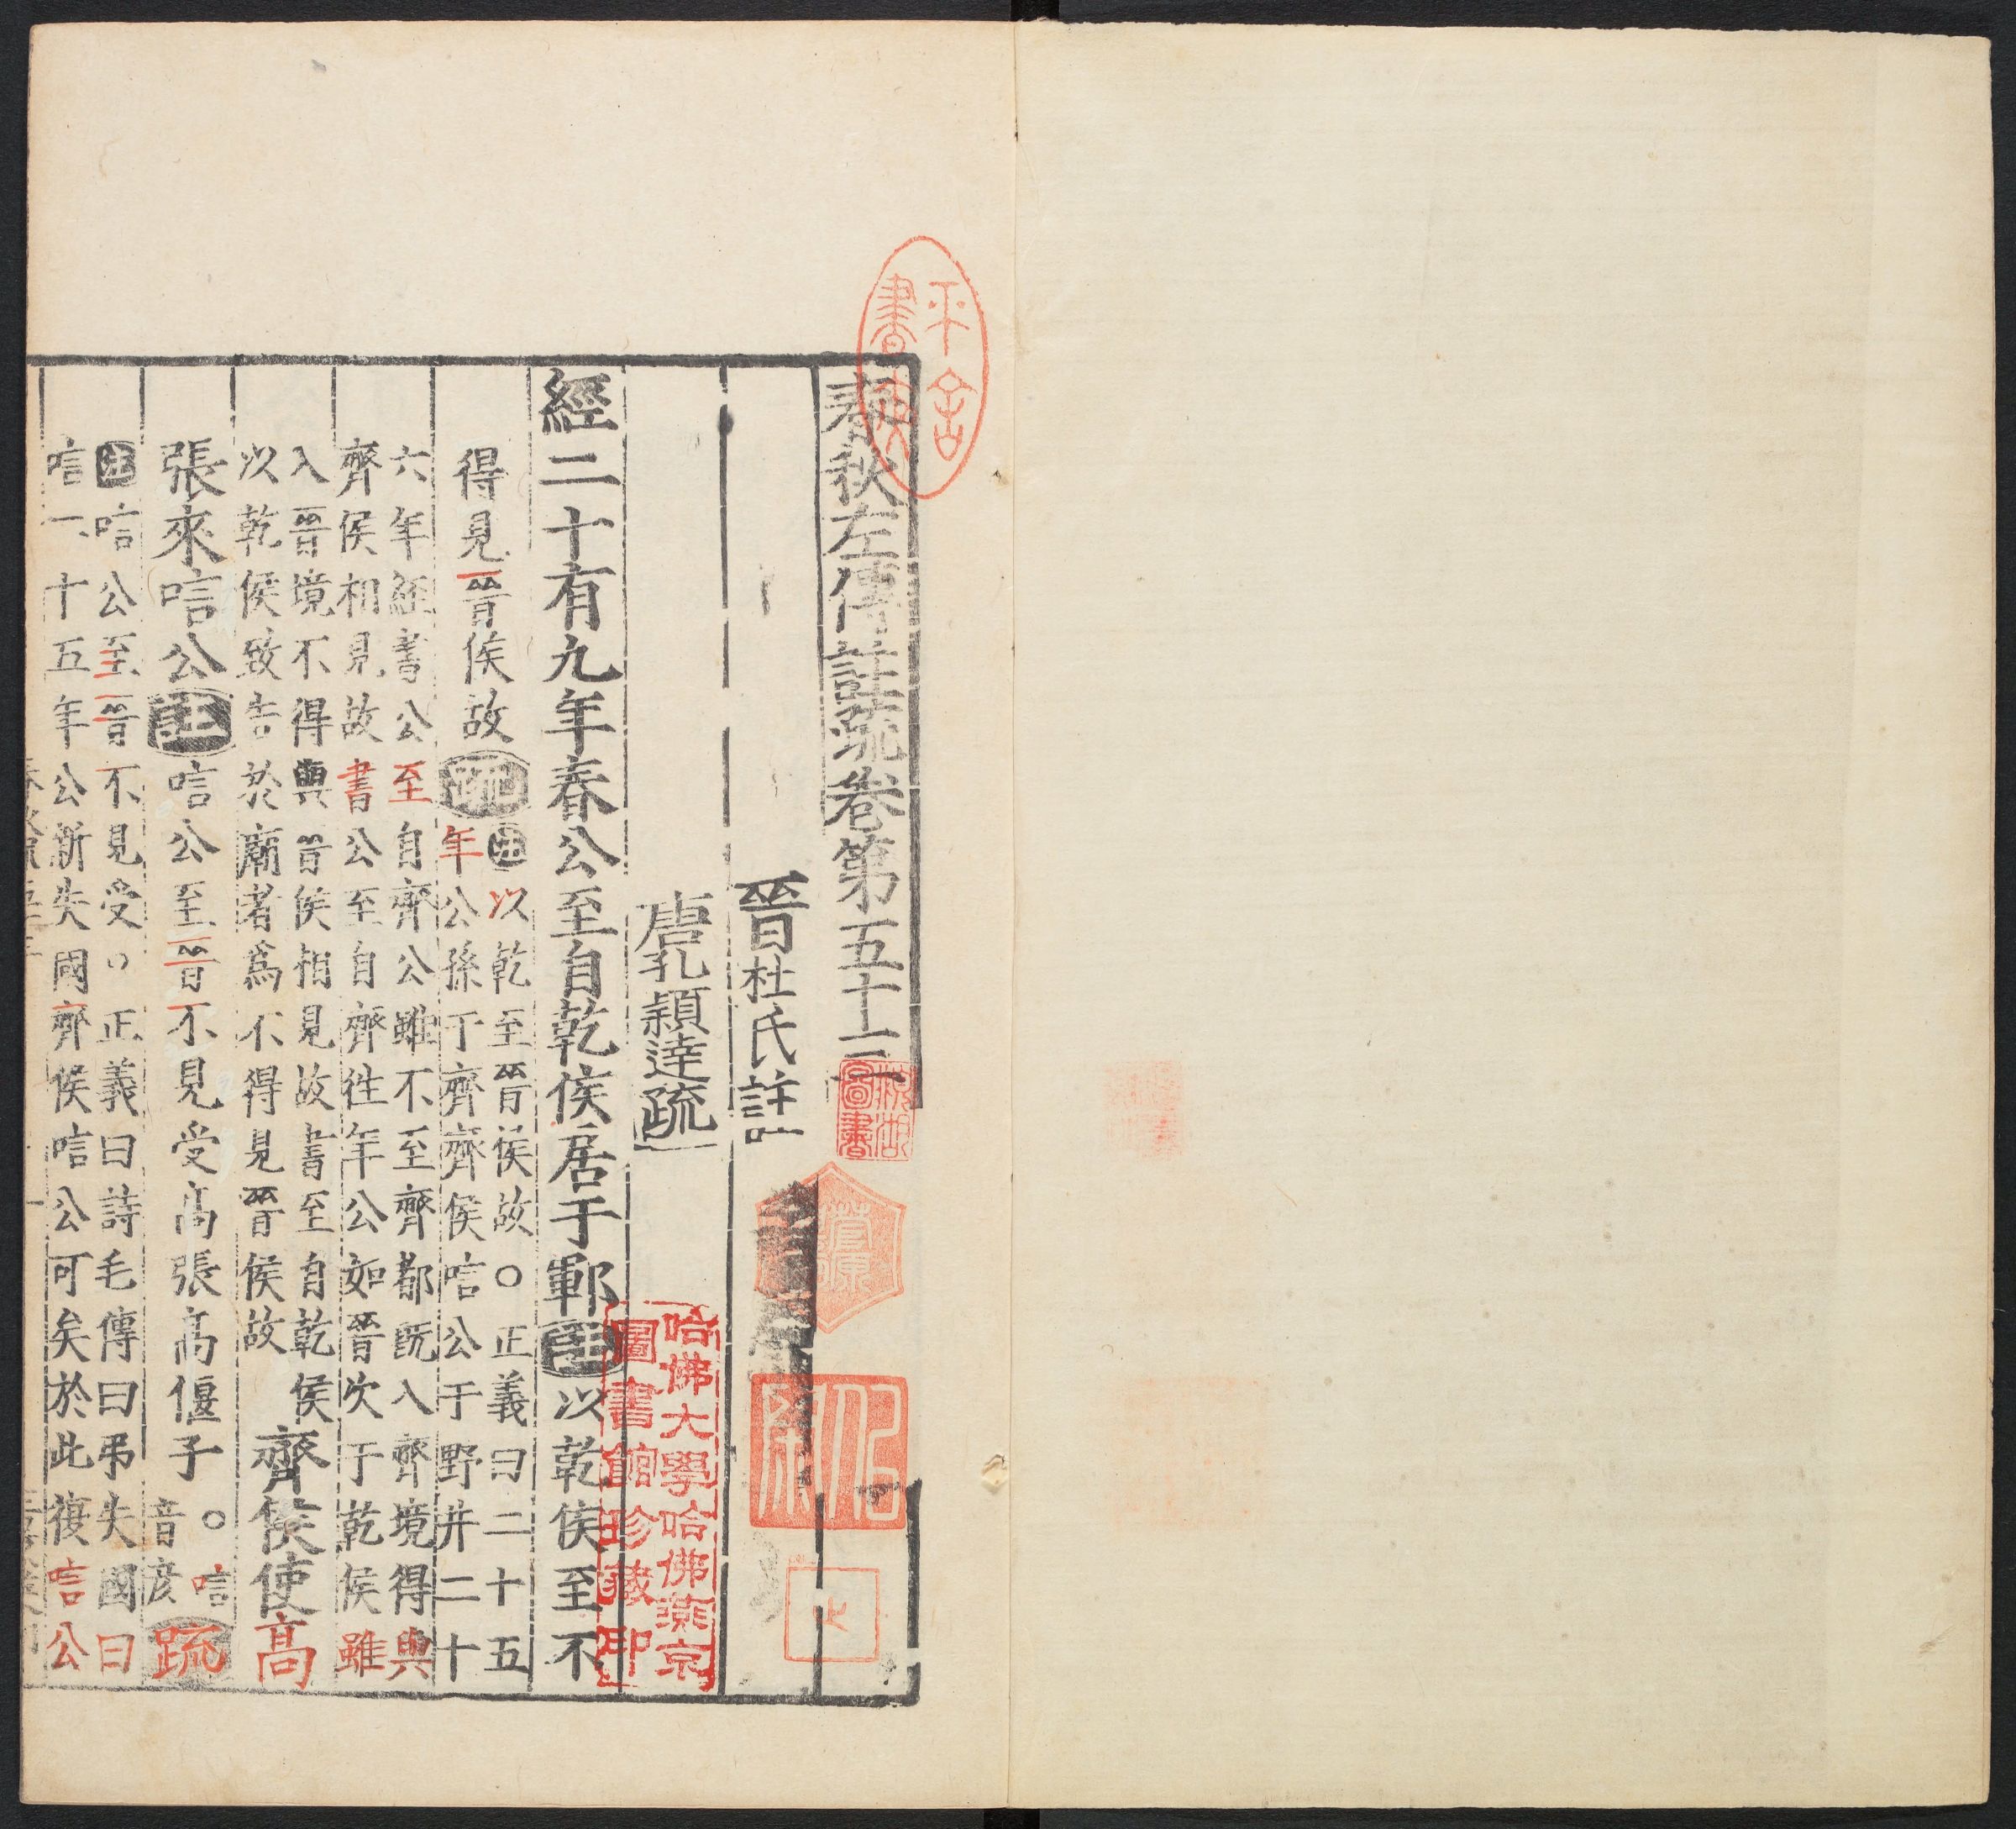 春秋左傳註疏卷第五十三
晉杜氏註
唐孔穎達疏
經二十有九年春公至自乾侯居于鄆註以乾侯至不
得見晉侯故疏註以乾至晉侯故○正義曰二十五
年公孫于齊齊侯唁公于野井二十
六年經書公至自齊公雖不至齊都既入齊境得與
齊侯相見故書公至自齊往年公如晉次于乾侯雖
入晉境不得與晉侯相見故書至自乾侯
以乾侯致告於廟者爲不得見晉侯故
齊侯使高
張來唁公註唁公至晉不見受高張高偃子○唁
音彦疏
註唁公至晉不見受○正義曰詩毛傳曰弔失國曰
唁二十五年公新失國齊侯唁公可矣於此復唁公
平舍
書史
圖書
哈佛大學哈佛燕京
圖書館珍藏印